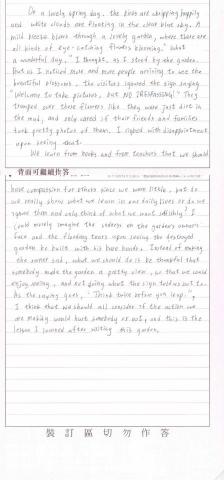 On a lovely spring day, the birds are chirpping happily
and white clouds are floating in the clear blue sky. A
mild breeze blows through a lovely garden, where there are
all kinds of eye-catching flowers blooming." What
a wonderful day," I thought, as I stood by the garden.
but as I noticed more and more people arriving to see the
beautiful blossoms, the visitors ignored the sign saying
"Welcome to take pictures, but NO TRESPASSING!" They
tromped over those flowers like they were just dirt in
the mud, and only cared if their friends and families
took pretty photos of them. I sighed with disappointment
upon seeing that.
We learn from books and from teachers that we should
背面可繼續作答
have compassion for others since we were little, but do
we really show what we learn in our daily lives or do we
ignore them and only think of what we want selfishly? I
could merely imagine the sadness on the garden owner's
face and the flooding tears upon seeing the destroyed
garden he built with his bare hands. Instead of making
the owner sad, what we should do is be thankful that
somebody made the garden a pretty view, so that we could
enjoy seeing, and not doing what the sign told us not to.
As the saying goes, "Think twice before you leap.",
I think that we should all consider if the action we
are making would hurt somebody or not, and this is the
lesson I learned after visiting this garden.
裝訂區切勿作答